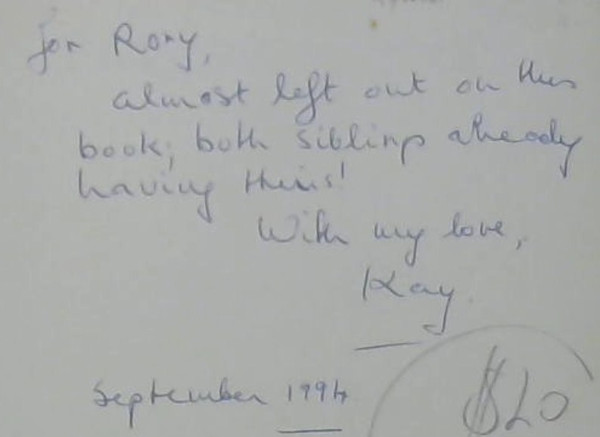 for Rory,
almost left out on this
book; both siblings already
having theirs!
With my love,
Kay.
September 1994
$20